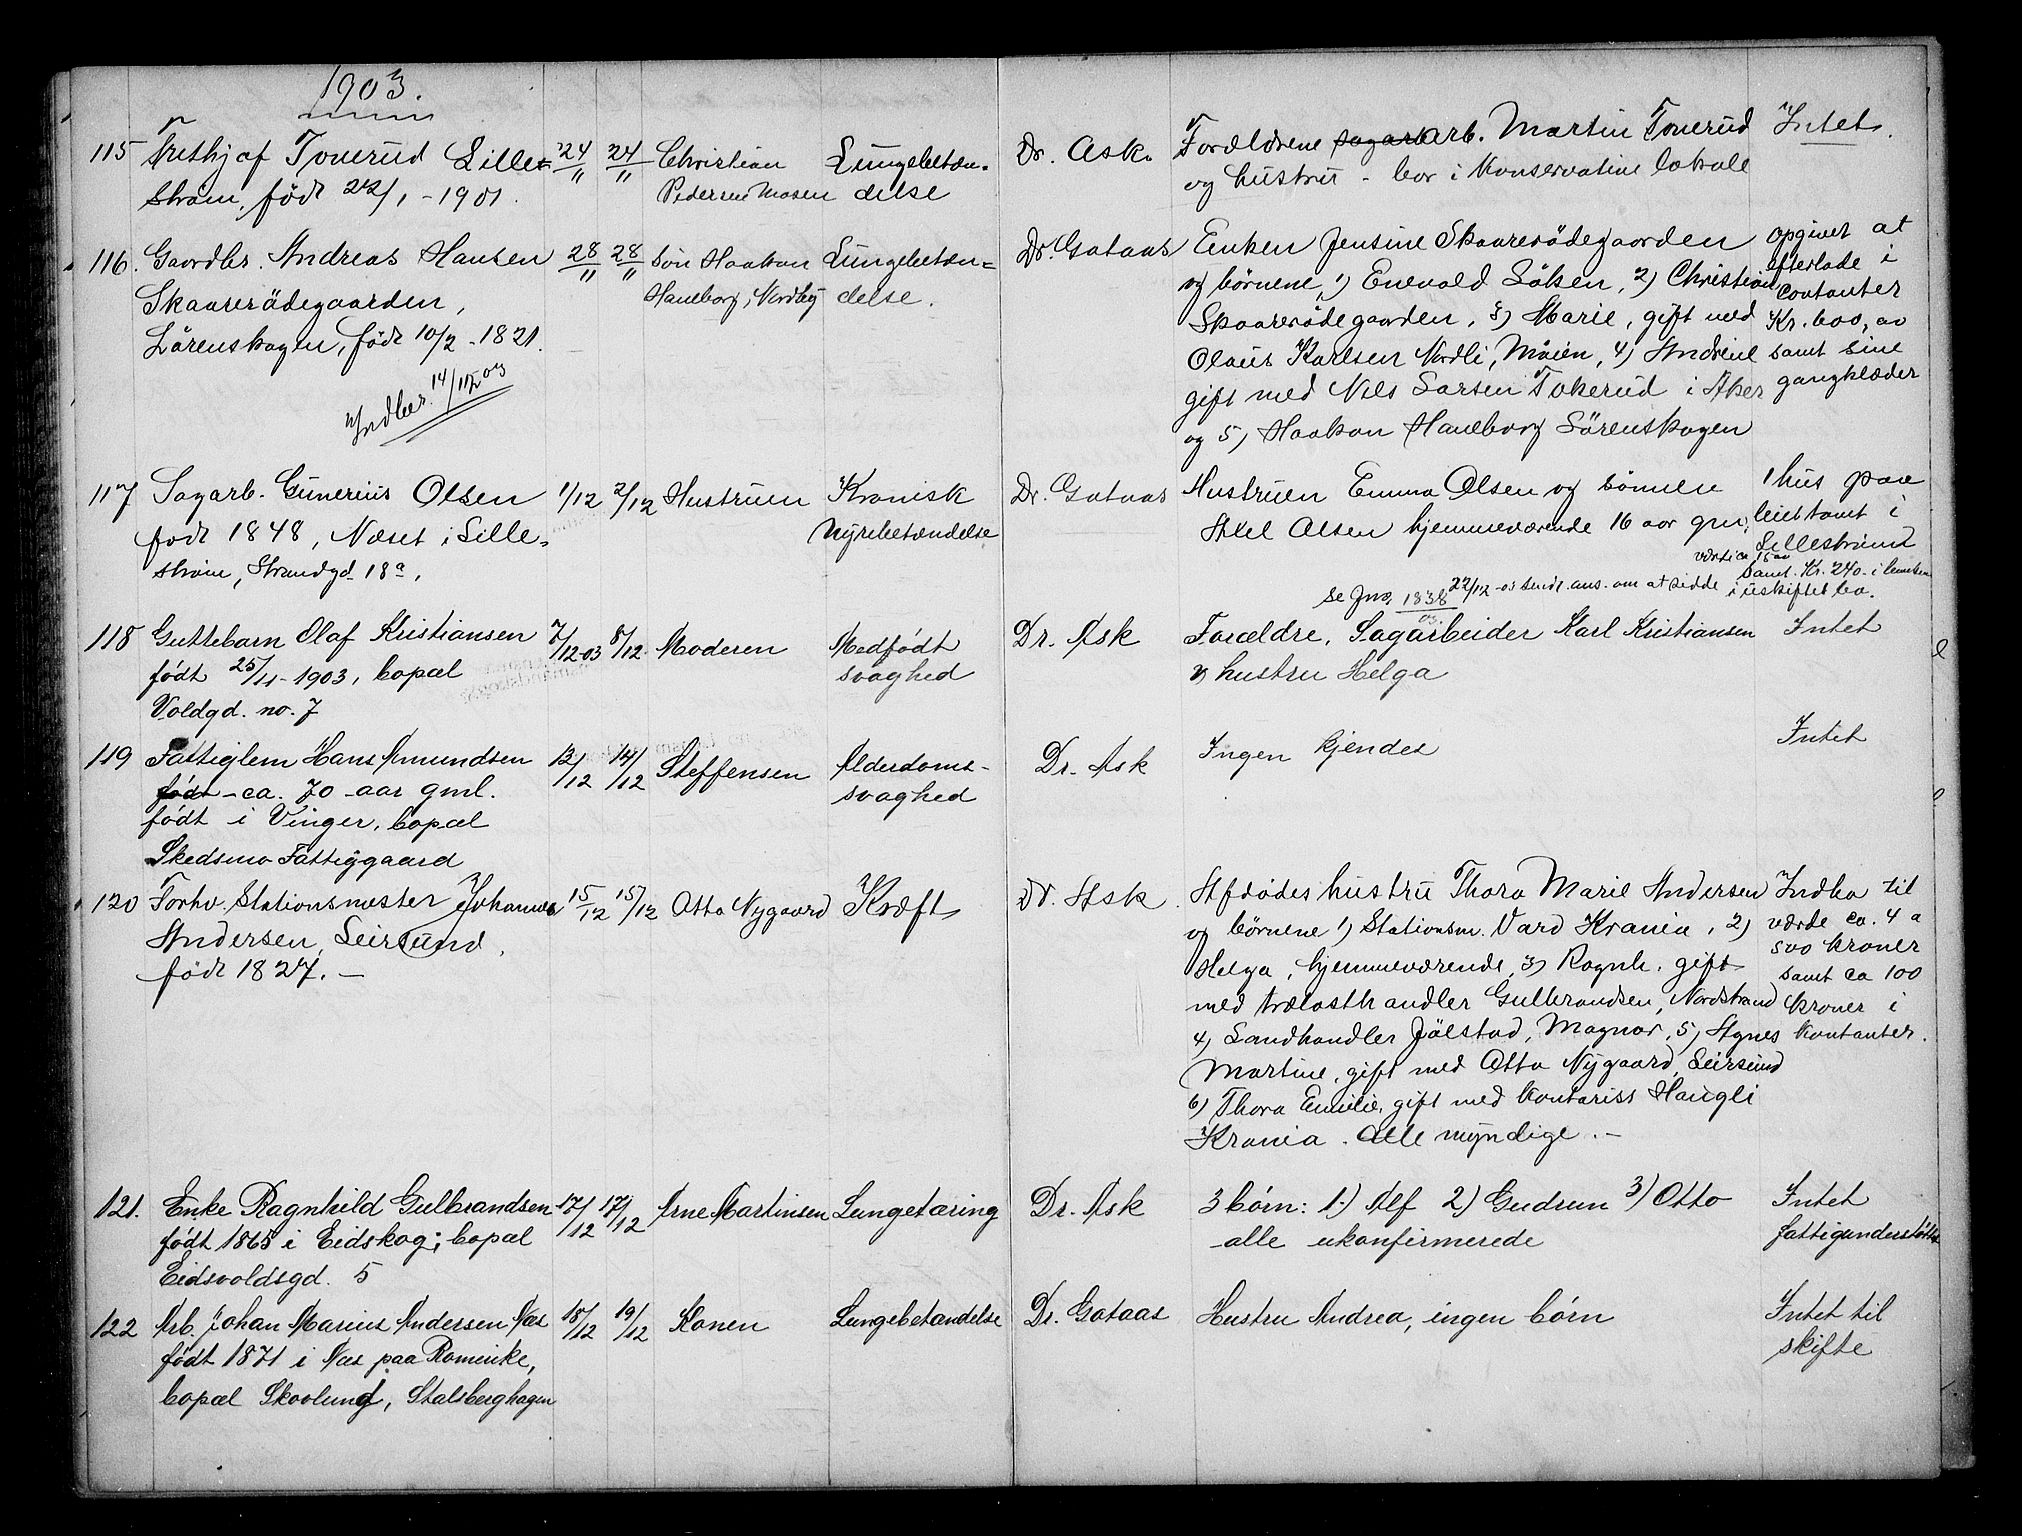 1903.
115 Frithjof Tonerud Lille= 24/11 24/11 Christian Lungebetæn- Dr. Ask. Forældrene sagarb arb. Martin Tonerud Intet.
strøm, født 22/1 - 1901. Pedersen Mosen delse og hustru - bor i Konservative lokale
116. Gaardbr. Andreas Hansen 28/11 28/11 søn Haakon Lungebetæn= Dr. Gotaas Enken Jensine Skaarerødegaarden opgivet at
Skaarerødegaarden, Haneborg, Nordby delse. og børnene, 1) Enevold Løken, 2) Christian efterlade i
Lørenskogen, født 10/2 - 1821. Skaarerødegaarden, 3) Marie, gift med contanter
Olaus Karlsen Nordli, Moien, 4) Andrine Kr. 600,00
gift med Nils Larsen Tokerud i Aker samt sine
og 5) Haakon Haneborg Lørenskogen gangklæder
Indber. 14/12 03
117 Sagarb. Gunerius Olsen 1/12 2/12 Hustruen Kronisk Dr. Gotaas Hustruen Emma Olsen og sønnen 1 hus paa
født 1848, Næset i Lille= Nyrebetændelse Axel Olsen hjemmeværende 16 aar gml, leiet tomt i
strøm, Strandgd. 18a. Lillestrøm
samt Kr. 240 - i
se Jno. 1838/03 22/12 - 03 sendt ans. om at sidde i uskiftet bo.
118 Guttebarn Olaf Kristiansen 7/12-03 8/12 Moderen Medfødt Dr. Ask Forældre, Sagarbeider Karl Kristiansen Intet
født 25/11 - 1903, bopæl svaghed og hustru Helga
Voldgd. no. 7
119 Fattiglem Hans Amundsen 13/12 14/12 Steffensen Alderdoms- Dr. Ask Ingen kjendes Intet
født - ca. 70 aar gml. svaghed
født i Vinger, bopæl
Skedsmo Fattiggaard
120 Forhv. Stationsmester Johannes 15/12 15/12 Otto Nygaard Kræft Dr. Ask Afdødes hustru Thora Marie Andersen Indbo til
Andersen, Leirsund, og børnene 1) Stationsm. Vard Krania, 2) værde ca. 4 a
født 1827. - Helga, hjemmeværende, 3) Ragnh. gift 500 kroner
med trælasthandler Gulbrandsen, Nordstrand samt ca 100
4) Landhandler Jølstad, Magnor, 5) Agnes kroner i
Martine, gift med Otto Nygaard, Leirsund Kontanter.
6) Thora Emilie, gift med kontorist Haugli
Krania. Alle myndige. -
121. Enke Ragnhild Gulbrandsen 17/12 17/12 Arne Martinsen Lungetæring Dr. Ask 3 børn: 1) Alf 2) Gudrun 3) Otto Intet
født 1865 i Eidskog; bopæl - alle ukonfirmerede fattigunderstøttet
Eidsvoldsgd. 5
122 Arb. Johan Marius Andersen Næs 18/12 19/12 Konen Lungebetændelse Dr. Gotaas Hustru Andrea, ingen børn Intet til
født 1871 i Næs paa Romerike, skifte
bopæl Skovlund, Stalsberghagen